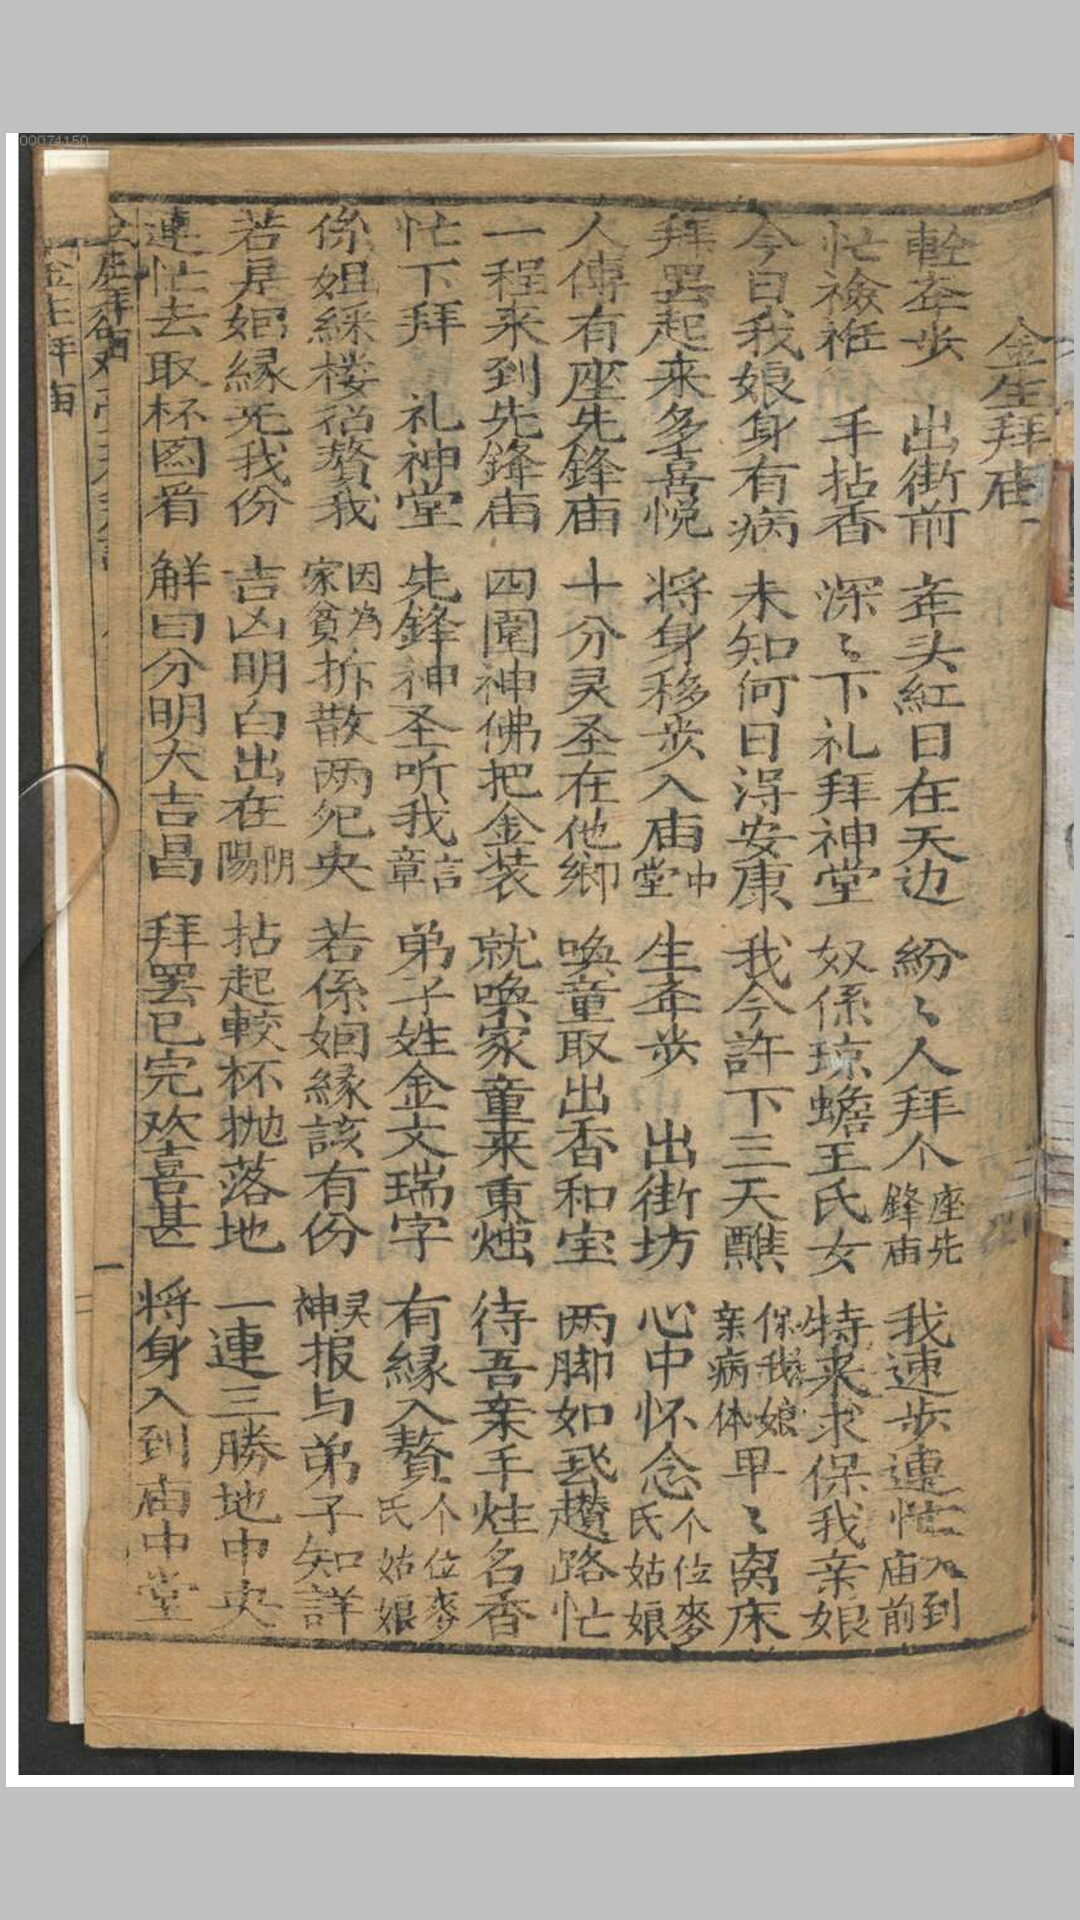 00074150
金生拜庙
輕牽步　出街前　年头紅日在天边　紛〻人拜个座先鋒庙　我速步連忙入到庙前
忙襝袵　手拈香　深〻下礼拜神堂　奴係琼蟾王氏女　特来求保我亲娘
今日我娘身有病　未知何日淂安康　我今許下三天醮　保我娘亲病体早〻离床
拜罢起来多喜悦　将身移步入庙中堂　生牽步　出街坊　心中怀念个位麥氏姑娘
人傳有座先鋒庙　十分灵圣在他鄉　喚童取出香和宝　两脚如飛趲路忙
一程来到先鋒庙　四圍神佛把金装　就喚家童来秉烛　待吾亲手炷名香
忙下拜　礼神堂　先鋒神圣听我言章　弟子姓金文瑞字　有緣入贅个位麥氏姑娘
係姐綵楼招贅我　因為家貧拆散两夗央　若係姻緣該有份　灵神报与弟子知詳
若是姻緣无我份　吉凶明白出在阴陽　拈起較杯抛落地　一連三勝地中央
連忙去取杯图看　解曰分明大吉昌　拜罢已完欢喜甚　将身入到庙中堂
金生拜庙
一